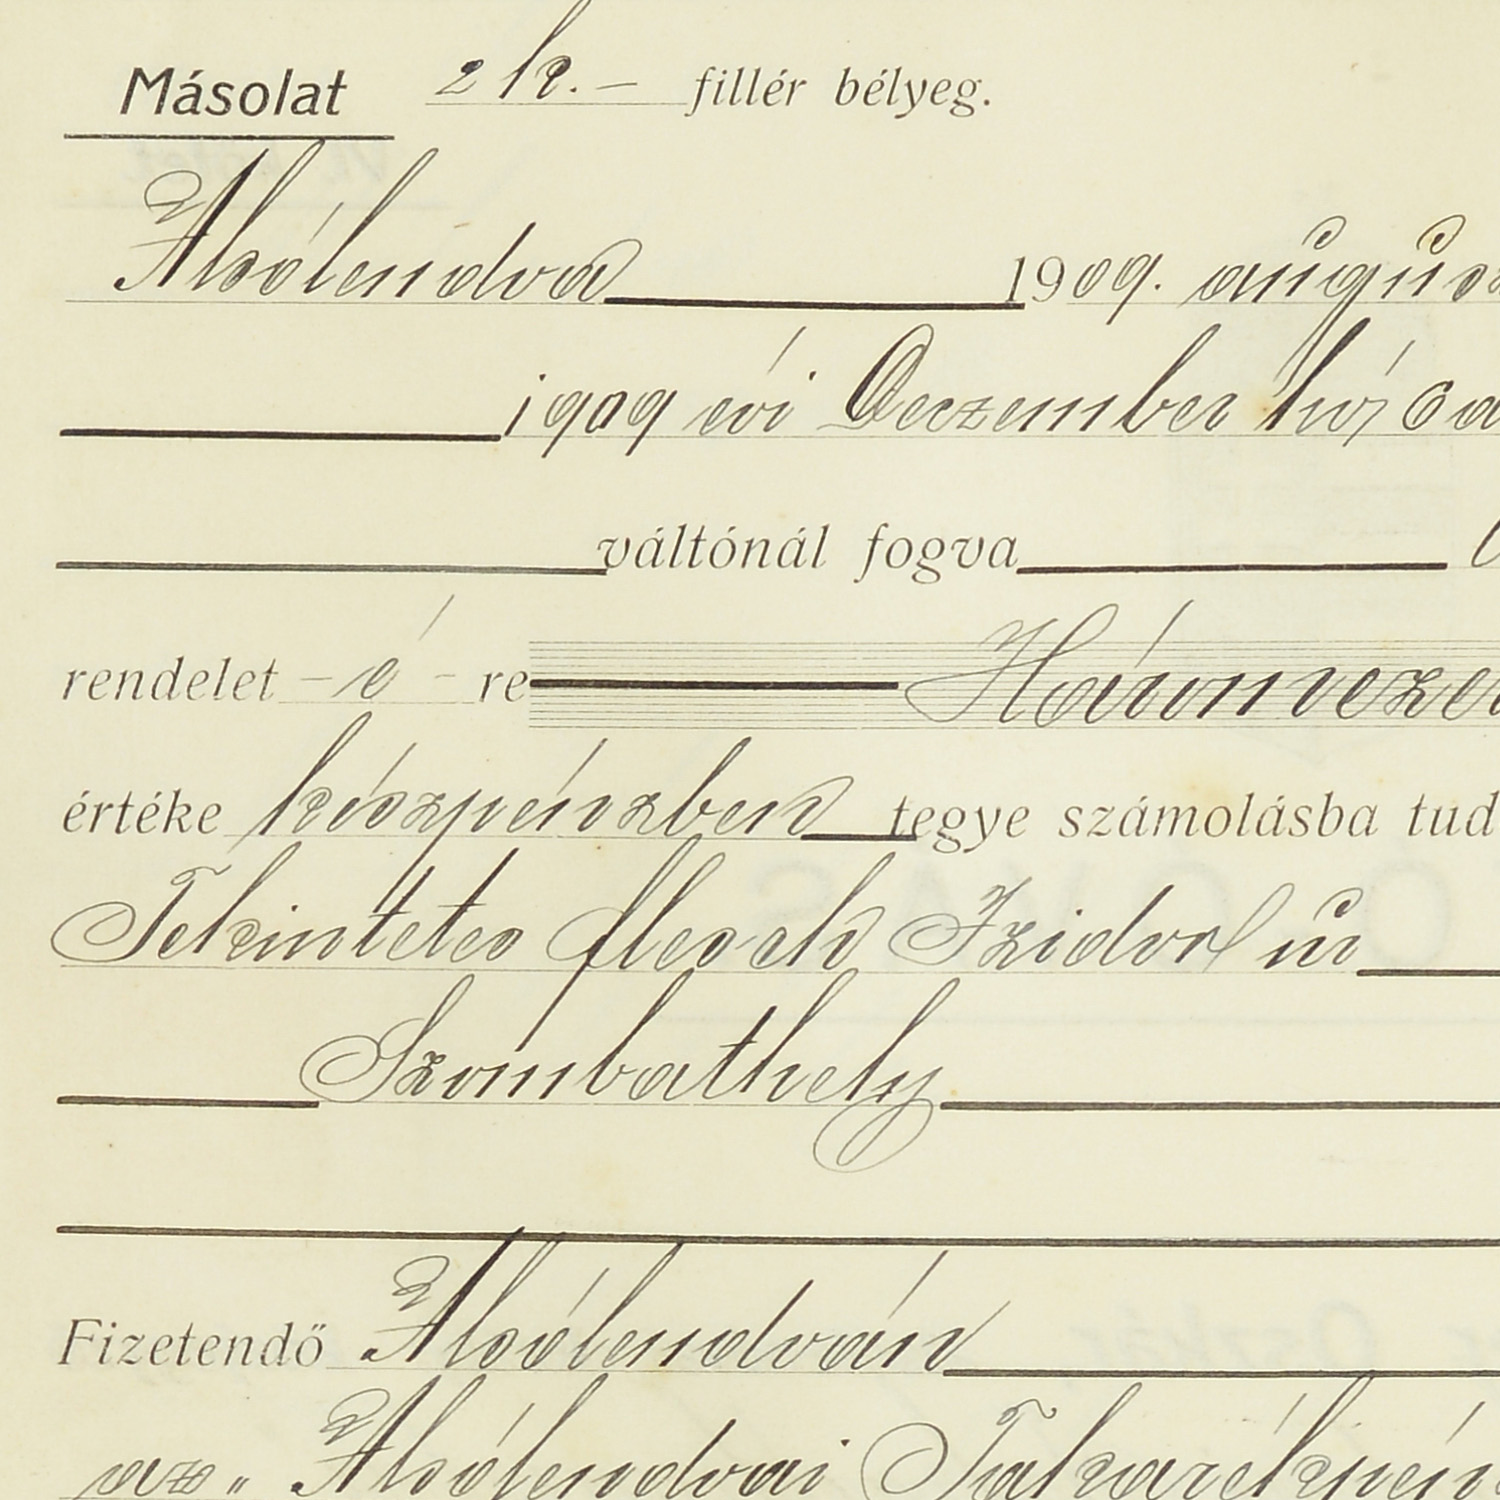 Másolat 2 k.– fillér bélyeg.
Alsólendva 1909. augus
1909 évi Deczember hó 6 a
váltónál fogva
rendelet – é – re Háromezer
értéke készpénzben tegye számolásba tud
Tekintetes flesch Izidor úr
Szombathely
Fizetendő Alsólendván
az „ Alsólendvai Takarékpén